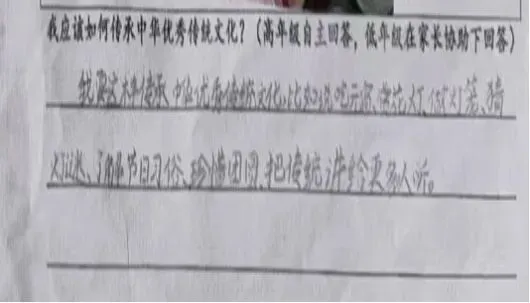 我应该如何传承中华优秀传统文化？（高年级自主回答，低年级在家长协助下回答）
我要这样传承中华优秀传统文化。比如说吃元宵、赏花灯、做灯笼、猜
灯谜、了解节日习俗、珍惜团圆、把传统讲给更多人听。